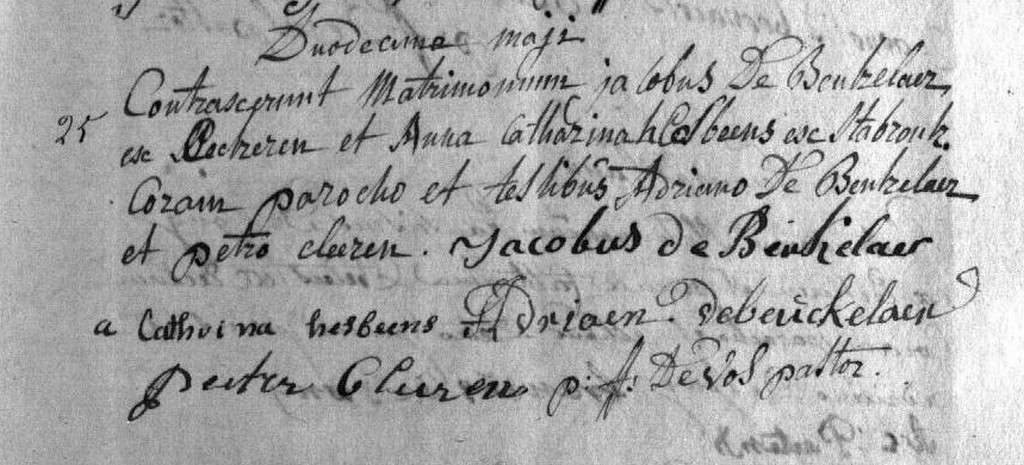 Duodecima maji
Contraxerunt Matrimonium jacobus De Beukelaer
25 ex Eeckeren et Anna Catharina hesbeens ex Stabrouk.
Coram parocho et testibus Adriano De Beukelaer
et petro cluren. Jacobus de Beukelaer
a Cathrina hesbeens Adriaen Debeuckelaer
peeter Cluren p: f: De Vos pastor.